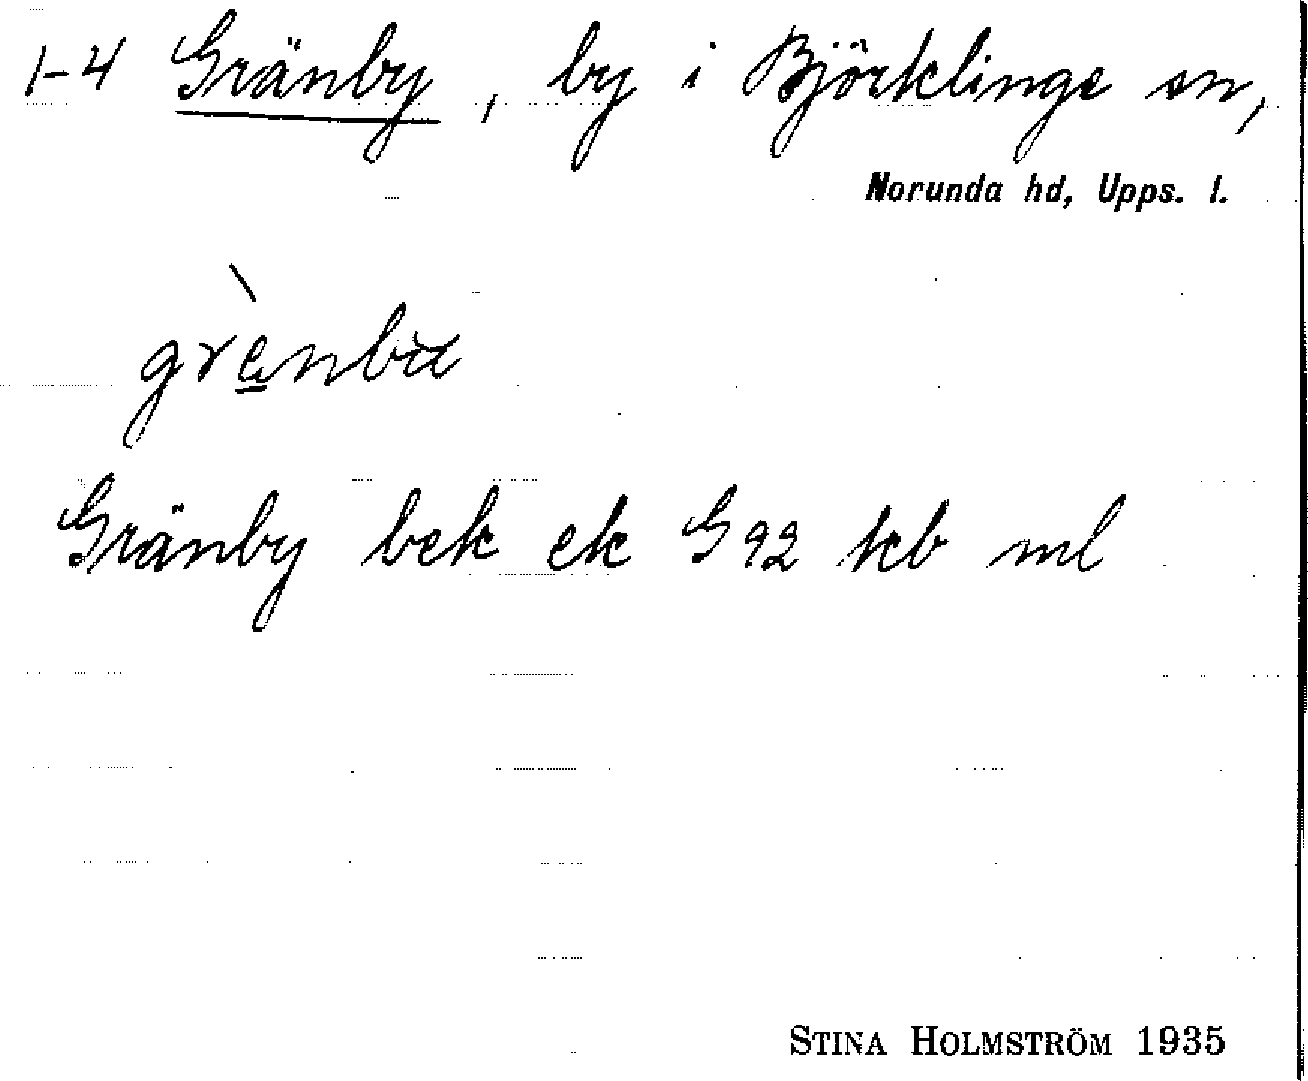 1-4 Gränby, by i Björklinge sn,
Norunda hd, Upps. l.
Gränby bek ek G92 kb ml
STINA HOLMSTRÖM 1935